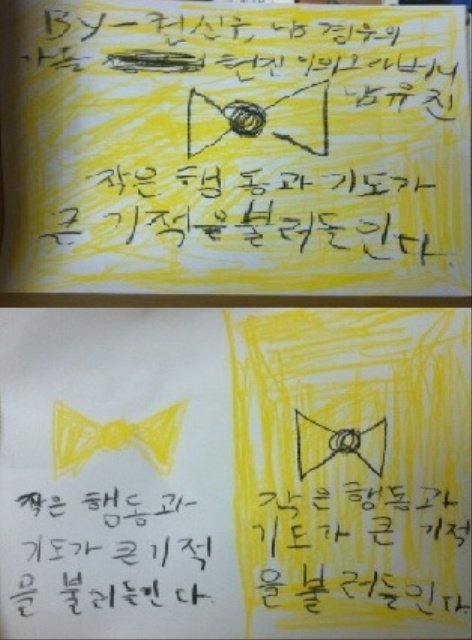 By-권신우, 남경우의
가들 현진이의 오라버니
남유진
작은 행동과 기도가
큰 기적을불러들인다.
작은 행동과
기도가 큰기적
을 불러들인다.
작은행동과
기도가 큰 기적
을불러들인다.